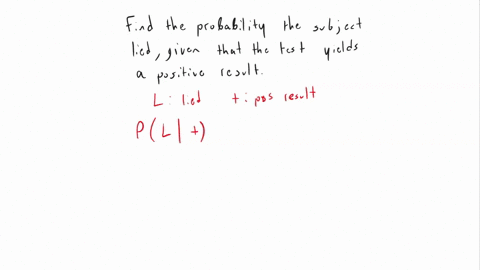 Find the probability the subject
lied, given that the test yields
a positive result.
L : lied + : pos result
P(L | +)